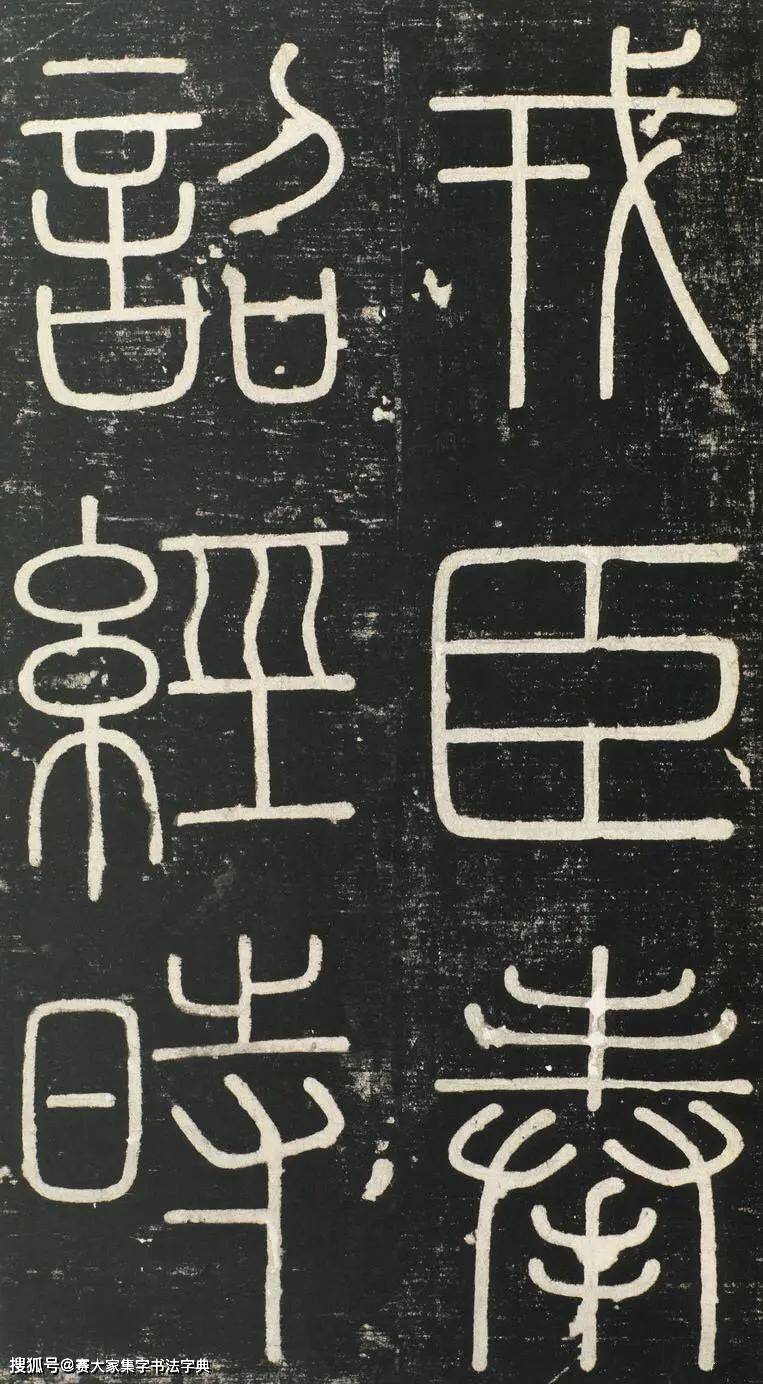 戎臣奉
詔經時
搜狐号@赛大家集字书法字典